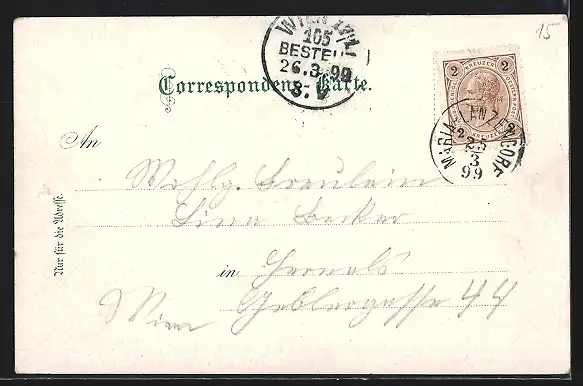 15
WIEN 17/1
105
BESTELLT
26.3.99
8.V
Correspondenz-Karte.
2 KREUZER 2
2 KREUZER 2
MARIA LANZENDORF
25
3
99
An
Wohlg. Fräulein
Lina Becker
in Hernals
Wien Geblergasse 44
Nur für die Adresse.